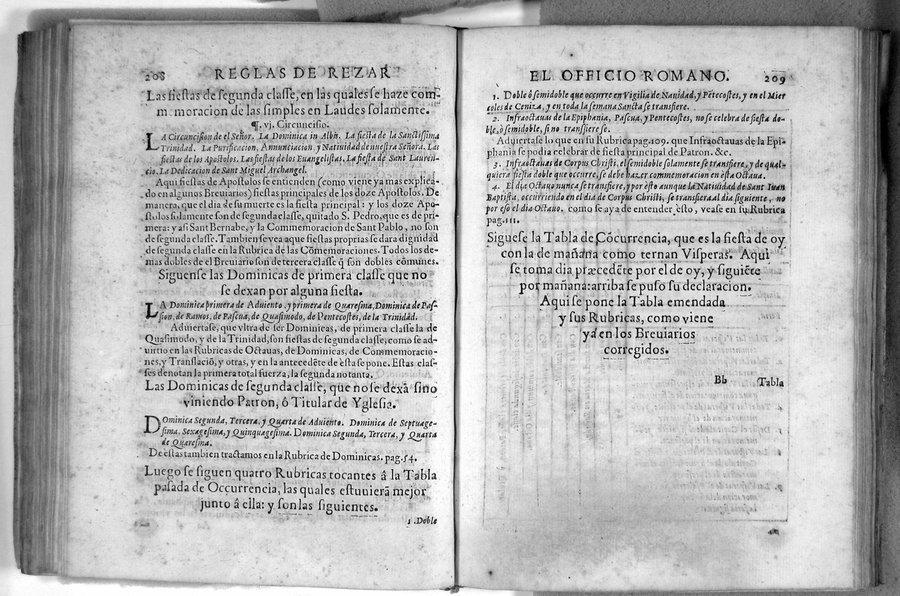 208 REGLAS DE REZAR
Las fiestas de segunda classe, en las quales se haze com-
memoracion de las simples en Laudes solamente.
¶. vj. Circuncisio.
LA Circuncision de el Señor. La Dominica in Albis. La fiesta de la Sanctissima
Trinidad. La Purificacion, Annunciacion, y Natividad de nuestra Señora. Las
fiestas de los Apostolos. Las fiestas de los Euangelistas. La fiesta de Sant Lauren-
cio. La Dedicacion de Sant Miguel Archangel.
Aqui fiestas de Apostolos se entienden (como viene ya mas explica-
do en algunos Breviarios) fiestas principales de los doze Apostolos. De
manera, que el dia de su muerte es la fiesta principal: y los doze Apo-
stolos solamente son de segunda classe, quitado S. Pedro, que es de pri-
mera: y asi Sant Bernabe, y la Commemoracion de Sant Pablo, no son
de segunda classe. Tambien se vea que fiestas proprias se dara dignidad
de segunda classe en la Rubrica de las Cõmemoraciones. Todos los de-
mas dobles de el Breviario son de tercera classe q̃ son dobles cõmunes.
Siguense las Dominicas de primera classe que no
se dexan por alguna fiesta.
LA Dominica primera de Aduiento, y primera de Quaresma, Dominica de Pas-
sion, de Ramos, de Pascua, de Quasimodo, de Pentecostes, de la Trinidad.
Aduiertase, que vltra de ser Dominicas, de primera classe la de
Quasimodo, y de la Trinidad, son fiestas de segunda classe, como se ad-
uirtio en las Rubricas de Octauas, de Dominicas, de Commemoracio-
nes, y Translaciõ, y otras, y en la antecedẽte de esta se pone. Estas clas-
ses denotan la primera total fuerza, la segunda no tanta.
Las Dominicas de segunda classe, que no se dexã sino
viniendo Patron, ô Titular de Yglesia.
DOminica Segunda, Tercera, y Quarta de Aduiento. Dominica de Septuage-
sima, Sexagesima, y Quinquagesima. Dominica Segunda, Tercera, y Quarta
de Quaresma.
De estas tambien tractamos en la Rubrica de Dominicas. pag. 54.
Luego se siguen quatro Rubricas tocantes â la Tabla
pasada de Occurrencia, las quales estuvierã mejor
junto â ella: y son las siguientes.
1. Doble
EL OFFICIO ROMANO. 209
1. Doble ô semidoble que occurre en Vigilia de Navidad, y Pẽtecostes, y en el Mier
coles de Ceniza, y en toda la semana Sancta se transfiere.
2. Infraoctauas de la Epiphania, Pascua, y Pentecostes, no se celebra de fiesta do-
ble, ô semidoble, si no transfiere se.
Aduiertase lo que en su Rubrica pag. 109. que Infraoctauas de la Epi-
phania se podia celebrar de fiesta principal de Patron. &c.
3. Infraoctauas de Corpus Christi, el semidoble solamente se transfiere, y de qual-
quiera fiesta doble que occurre, se debe hazer commemoracion en esta Octaua.
4. El dia Octauo nunca se transfiere, y por esto aunque la Natiuidad de Sant Iuan
Baptista, occurriendo en el dia de Corpus Christi, se transfiera al dia siguiente, no
por eso el dia Octauo. como se aya de entender esto, vease en su Rubrica
pag. 111.
Siguese la Tabla de Cõcurrencia, que es la fiesta de oy
con la de mañana como ternan Visperas. Aqui
se toma dia præcedẽte por el de oy, y siguiẽte
por mañana: arriba se puso su declaracion.
Aqui se pone la Tabla emendada
y sus Rubricas, como viene
ya en los Breviarios
corregidos.
Bb Tabla